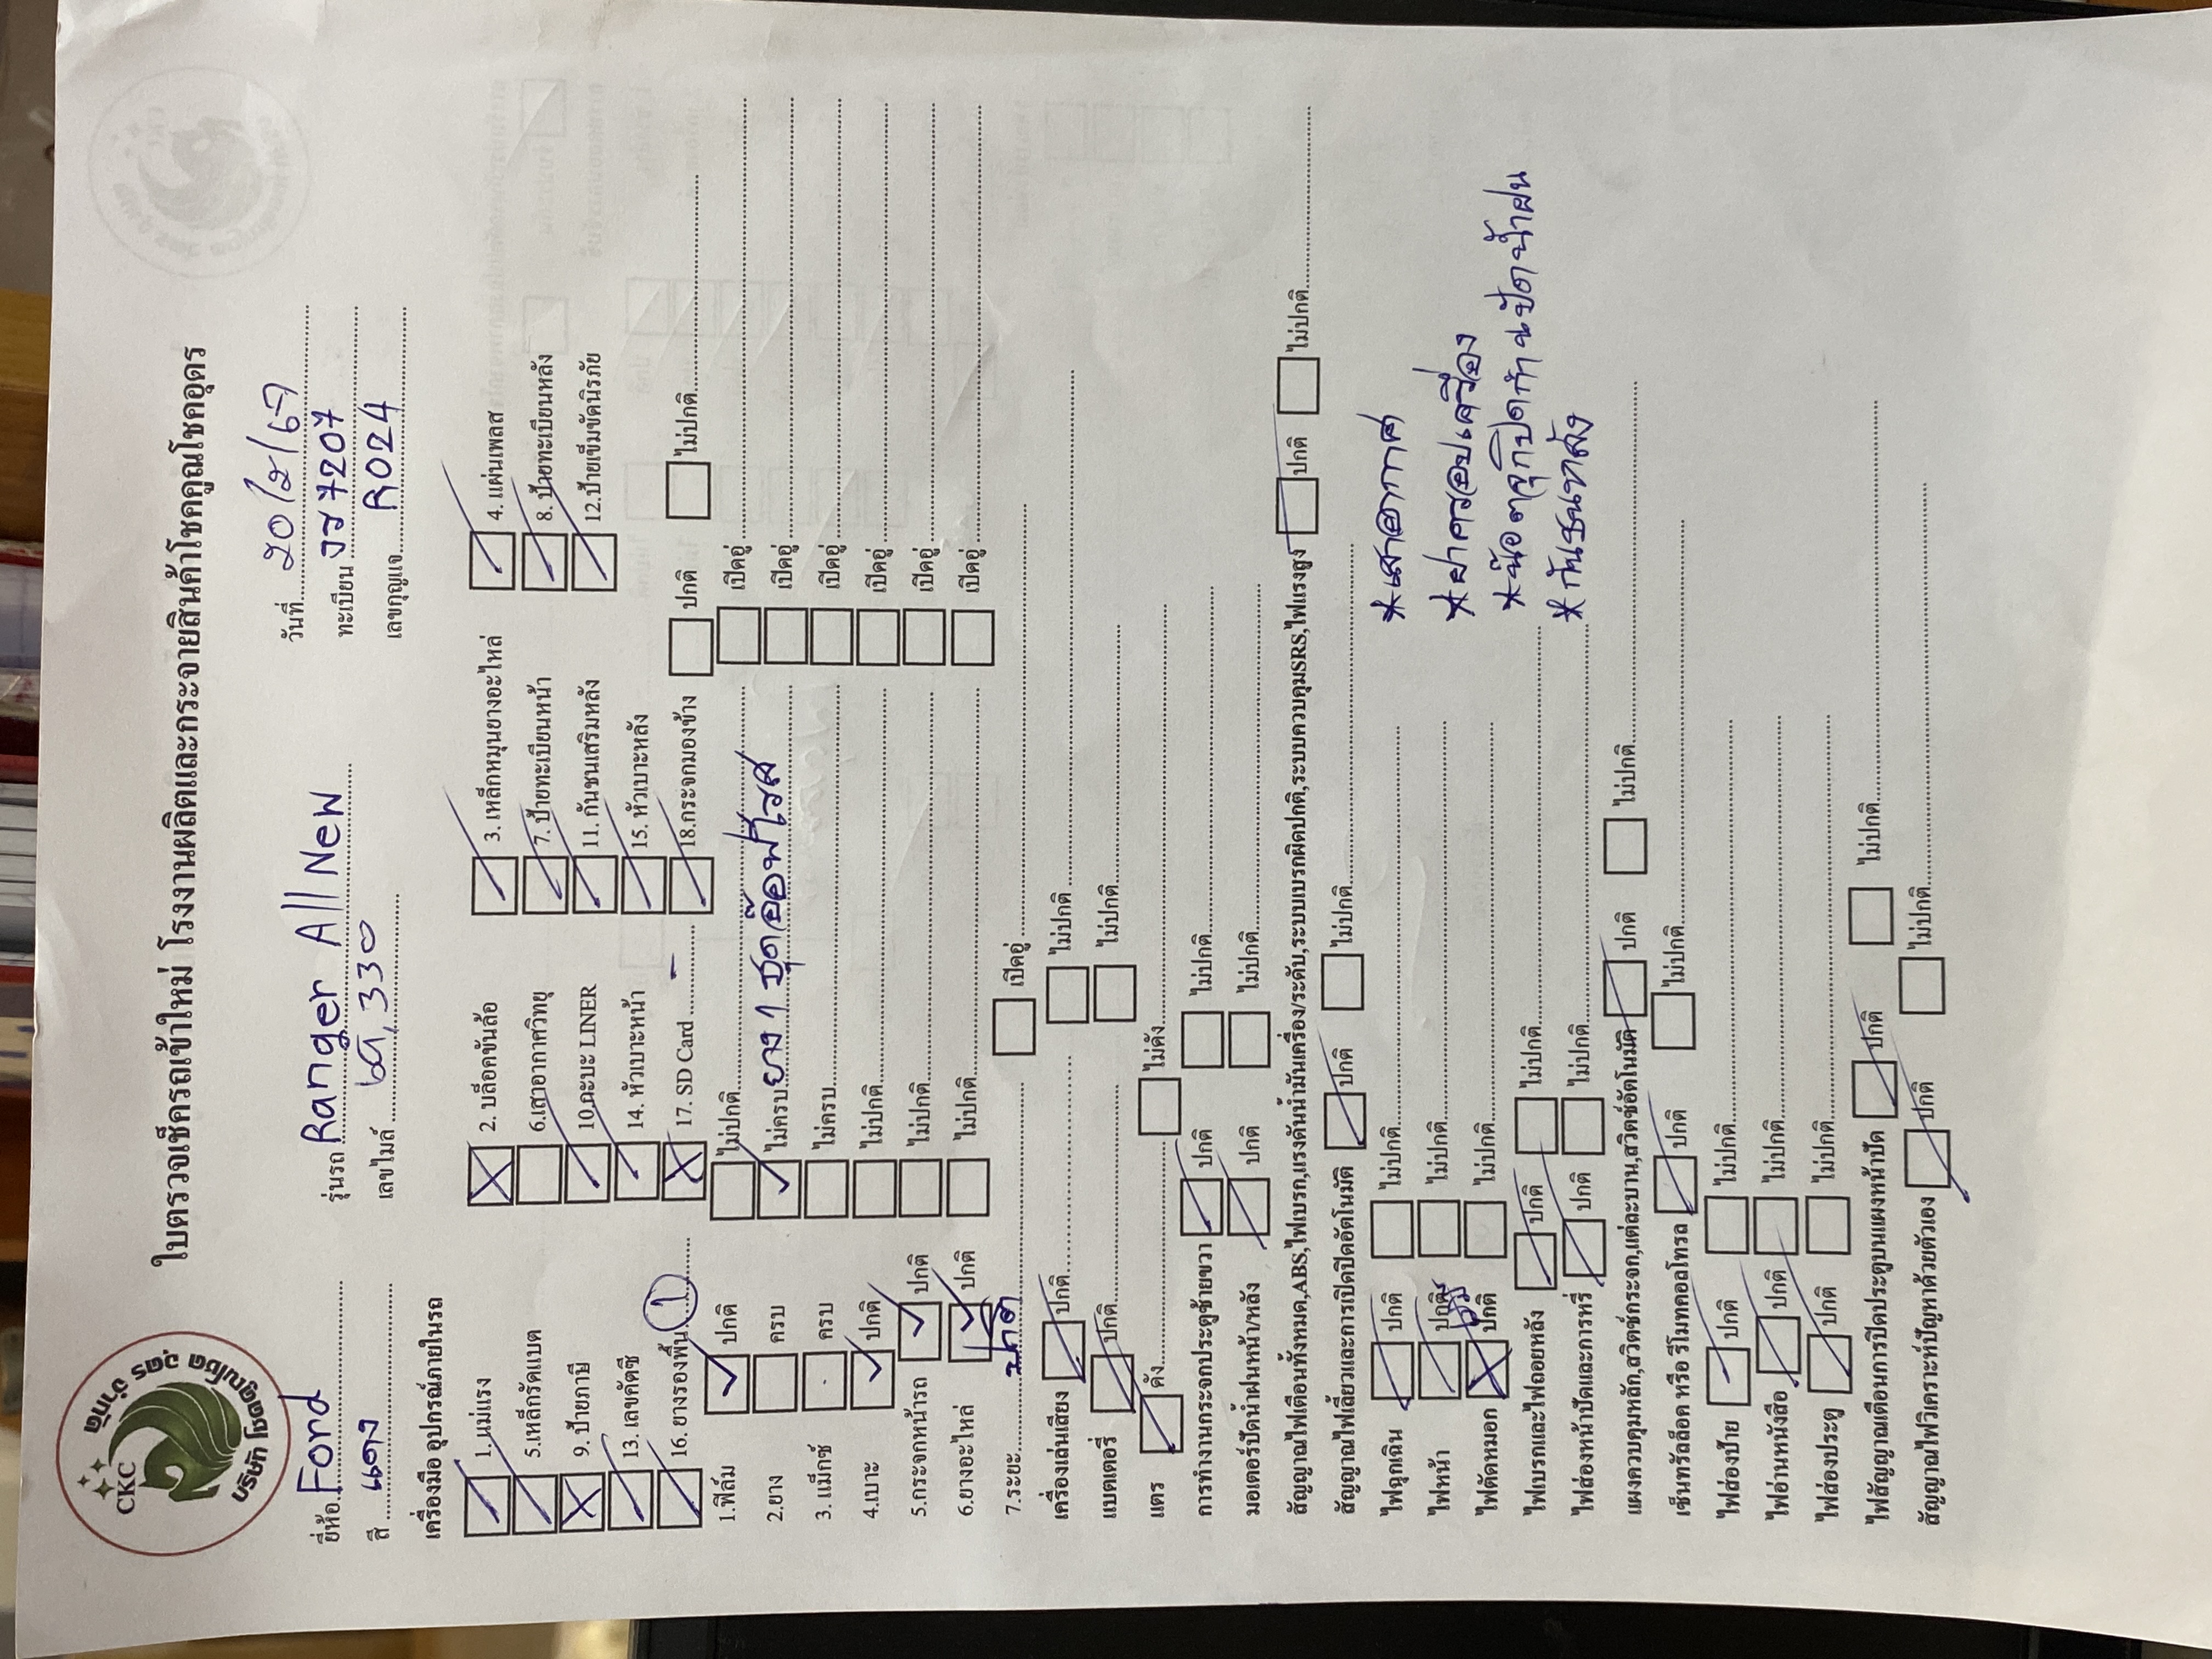 บริษัท คูณโชคอุดร จำกัด
CKC
ใบตรวจเช็ครถเข้าใหม่ โรงงานผลิตและกระจายสินค้าโชคคูณโชคอุดร
วันที่ 20/2/67
ยี่ห้อ Ford รุ่นรถ Ranger All New ทะเบียน 7207
สี แดง เลขไมล์ 69,330 เลขกุญแจ R024
เครื่องมือ อุปกรณ์ภายในรถ
1.แม่แรง 2. บล็อคขันล้อ 3. เหล็กหมุนยางอะไหล่ 4. แผ่นเพลส
5.เหล็กรัดแบต 6.เสาอากาศวิทยุ 7. ป้ายทะเบียนหน้า 8. ป้ายทะเบียนหลัง
9. ป้ายภาษี 10.กะบะ LINER 11. กันชนเสริมหลัง 12.ป้ายเข็มขัดนิรภัย
13. เลขคัตซี 14. หัวเบาะหน้า 15. หัวเบาะหลัง
16. ยางรองพื้น 1 17. SD Card - 18.กระจกมองข้าง ปกติ ไม่ปกติ
1.ฟิล์ม ปกติ ไม่ปกติ เปิดคู่
2.ยาง ครบ ไม่ครบ ยาง 1 ชุด อ๊อฟโรส เปิดคู่
3. แม็กซ์ ครบ ไม่ครบ เปิดคู่
4.เบาะ ปกติ ไม่ปกติ เปิดคู่
5.กระจกหน้ารถ ปกติ ไม่ปกติ เปิดคู่
6.ยางอะไหล่ ปกติ ไม่ปกติ เปิดคู่
7.ระยะ ปกติ เปิดคู่
เครื่องเล่นเสียง ปกติ ไม่ปกติ
แบตเตอรี่ ปกติ ไม่ปกติ
แตร ดัง ไม่ดัง
การทำงานกระจกประตูซ้ายขวา ปกติ ไม่ปกติ
มอเตอร์ปัดน้ำฝนหน้า/หลัง ปกติ ไม่ปกติ
สัญญาณไฟเตือนทั้งหมด,ABS,ไฟเบรก,แรงดันน้ำมันเครื่อง/ระดับ,ระบบเบรกผิดปกติ,ระบบควบคุมSRS,ไฟแรงสูง ปกติ ไม่ปกติ
สัญญาณไฟเลี้ยวและการเปิดปิดอัตโนมัติ ปกติ ไม่ปกติ
ไฟฉุกเฉิน ปกติ ไม่ปกติ
*เสาอากาศ
ไฟหน้า ปกติ ไม่ปกติ
*ฝาครอบเครื่อง
ไฟตัดหมอก ปกติ ไม่ปกติ
*น๊อตจุกปิดก้านปัดน้ำฝน
ไฟเบรกและไฟถอยหลัง ปกติ ไม่ปกติ
*กันชนหลัง
ไฟส่องหน้าปัดและการหรี่ ปกติ ไม่ปกติ
แผงควบคุมหลัก,สวิตซ์กระจก,แต่ละบาน,สวิตซ์อัตโนมัติ ปกติ ไม่ปกติ
เซ็นทรัลล็อค หรือ รีโมทคอลโทรล ปกติ ไม่ปกติ
ไฟส่องป้าย ปกติ ไม่ปกติ
ไฟอ่านหนังสือ ปกติ ไม่ปกติ
ไฟส่องประตู ปกติ ไม่ปกติ
ไฟสัญญาณเตือนการปิดประตูบนแผงหน้าปัด ปกติ ไม่ปกติ
สัญญาณไฟวิเคราะห์ปัญหาด้วยตัวเอง ปกติ ไม่ปกติ